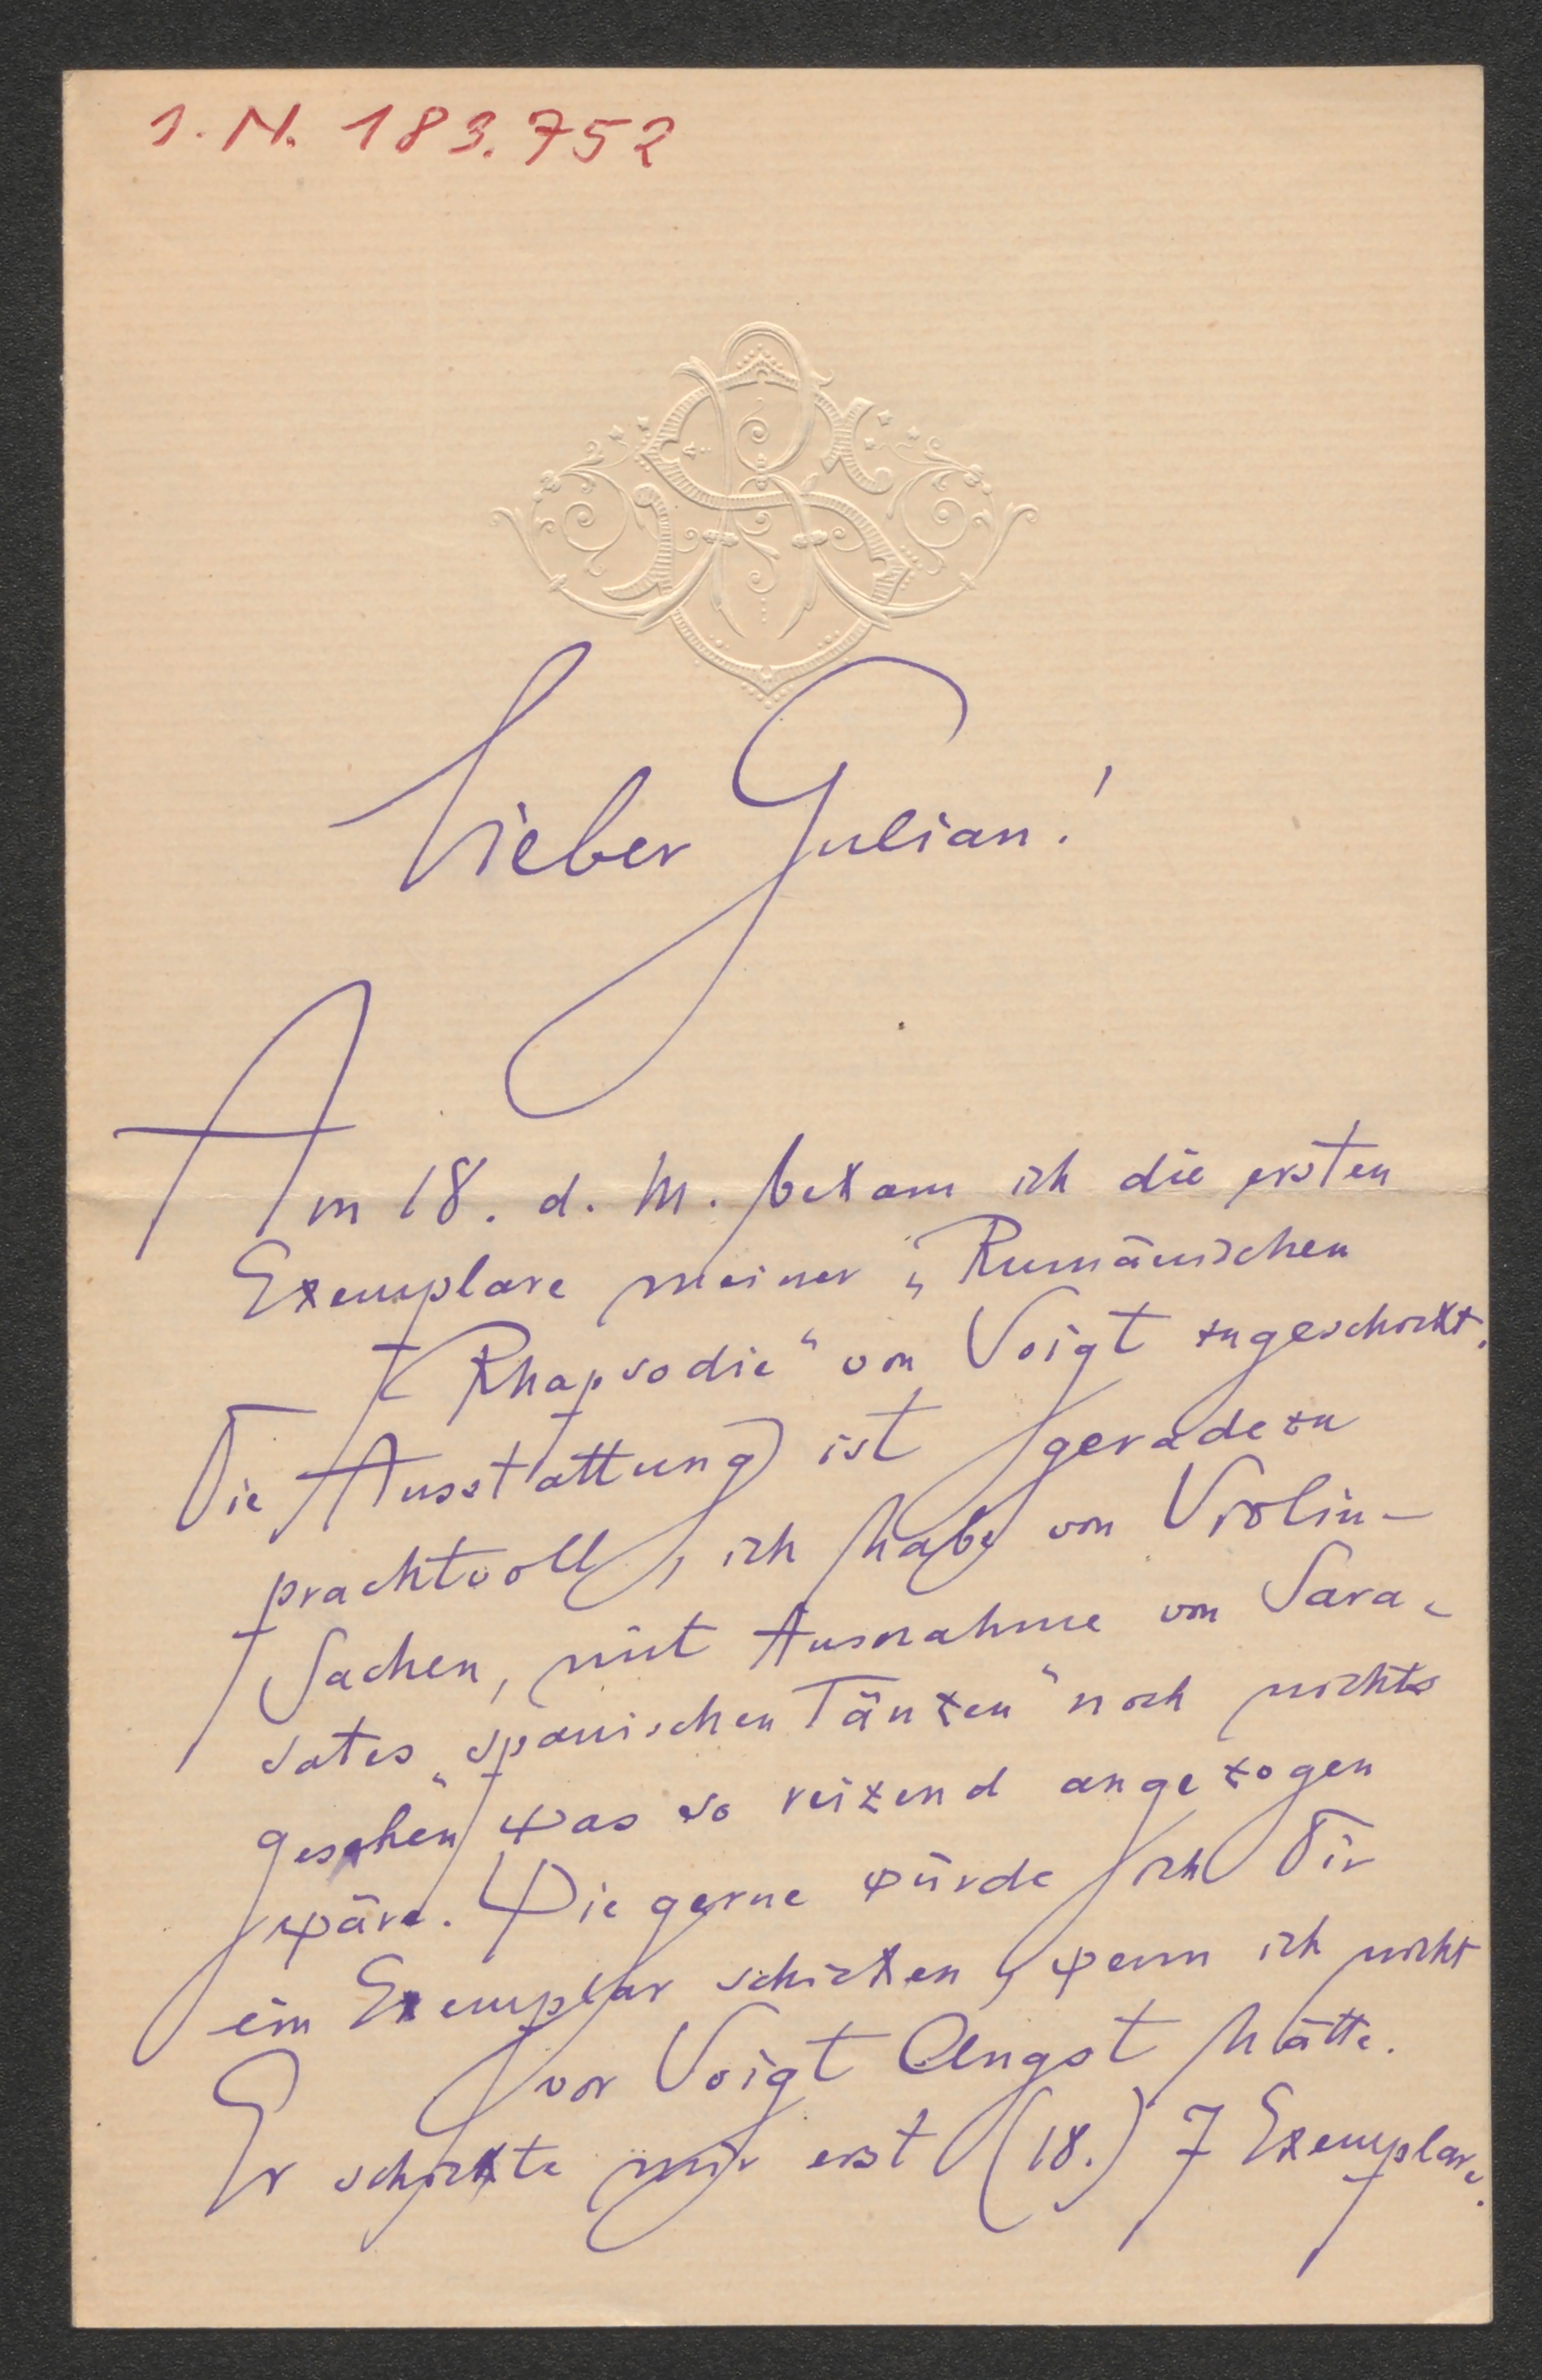 I. N. 183.752
Lieber Julian!
Am 18. d. M. bekam ich die ersten
Exemplare meiner „Rumänischen
Rhapsodie“ von Voigt zugeschickt.
Die Ausstattung ist geradezu
prachtvoll, ich habe von Violin-
Sachen, mit Ausnahme von Sara-
sates „spanischen Tänzen“ noch nichts
gesehen was so reizend angezogen
wäre. Wie gerne würde ich Dir
ein Exemplar schicken, wenn ich nicht
vor Voigt Angst hätte.
Er schickte mir erst (18.) 7 Exemplare.